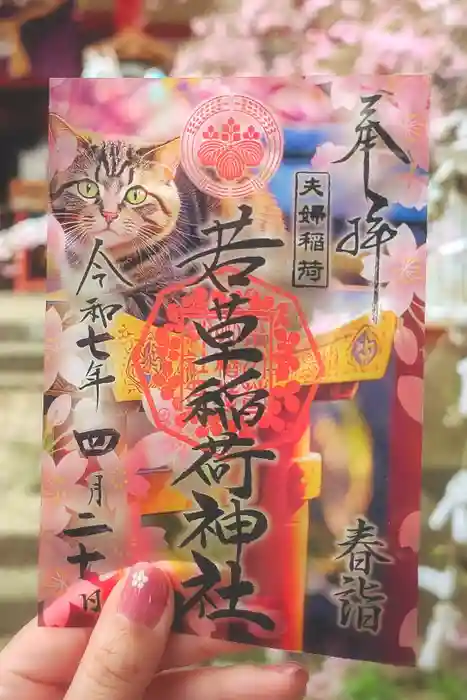 奉拝
夫婦稲荷
春詣
若草稲荷神社
令和七年四月二十日